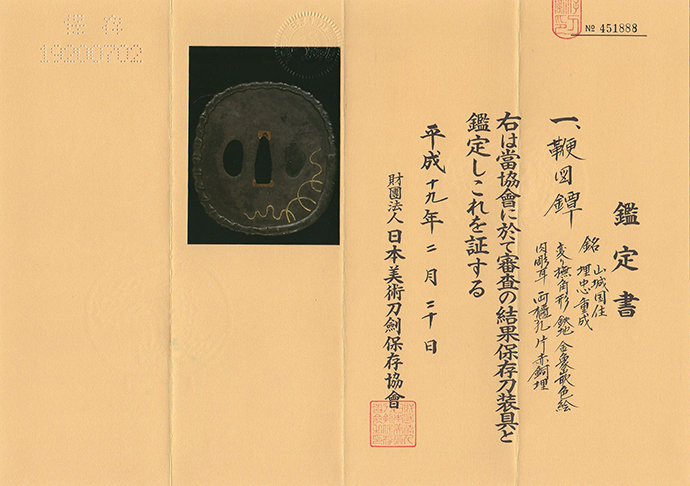 鑑定書
一、鞭図鐔
銘 山城国住
埋忠重成
変り撫角形 鉄地 金象嵌色絵
肉彫耳 両櫃孔 片赤銅埋
右は當協會に於て審査の結果保存刀装具と
鑑定しこれを証する
平成十九年二月二十日
財團法人 日本美術刀劍保存協會
№ 451888
保存
19200702